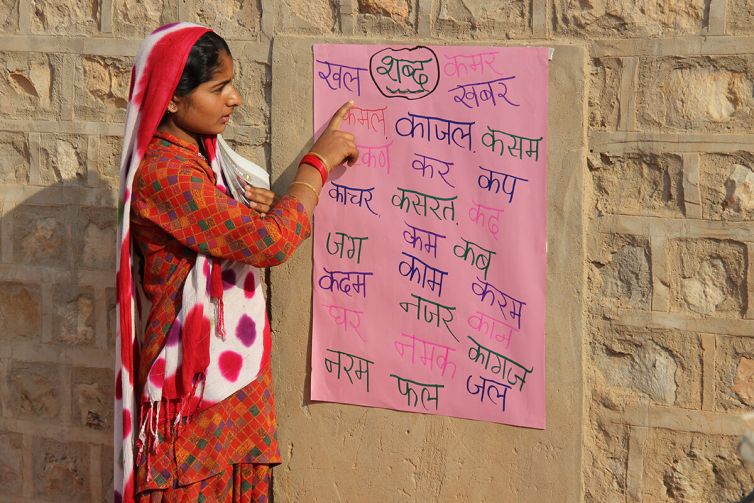 खल शब्द कमर
खबर
कमल, काजल, कसम
कण कर कप
काचर, कसरत, कद
जग कम कब
कदम काम करम
घर नजर काम
नरम नमक कागज
फल जल